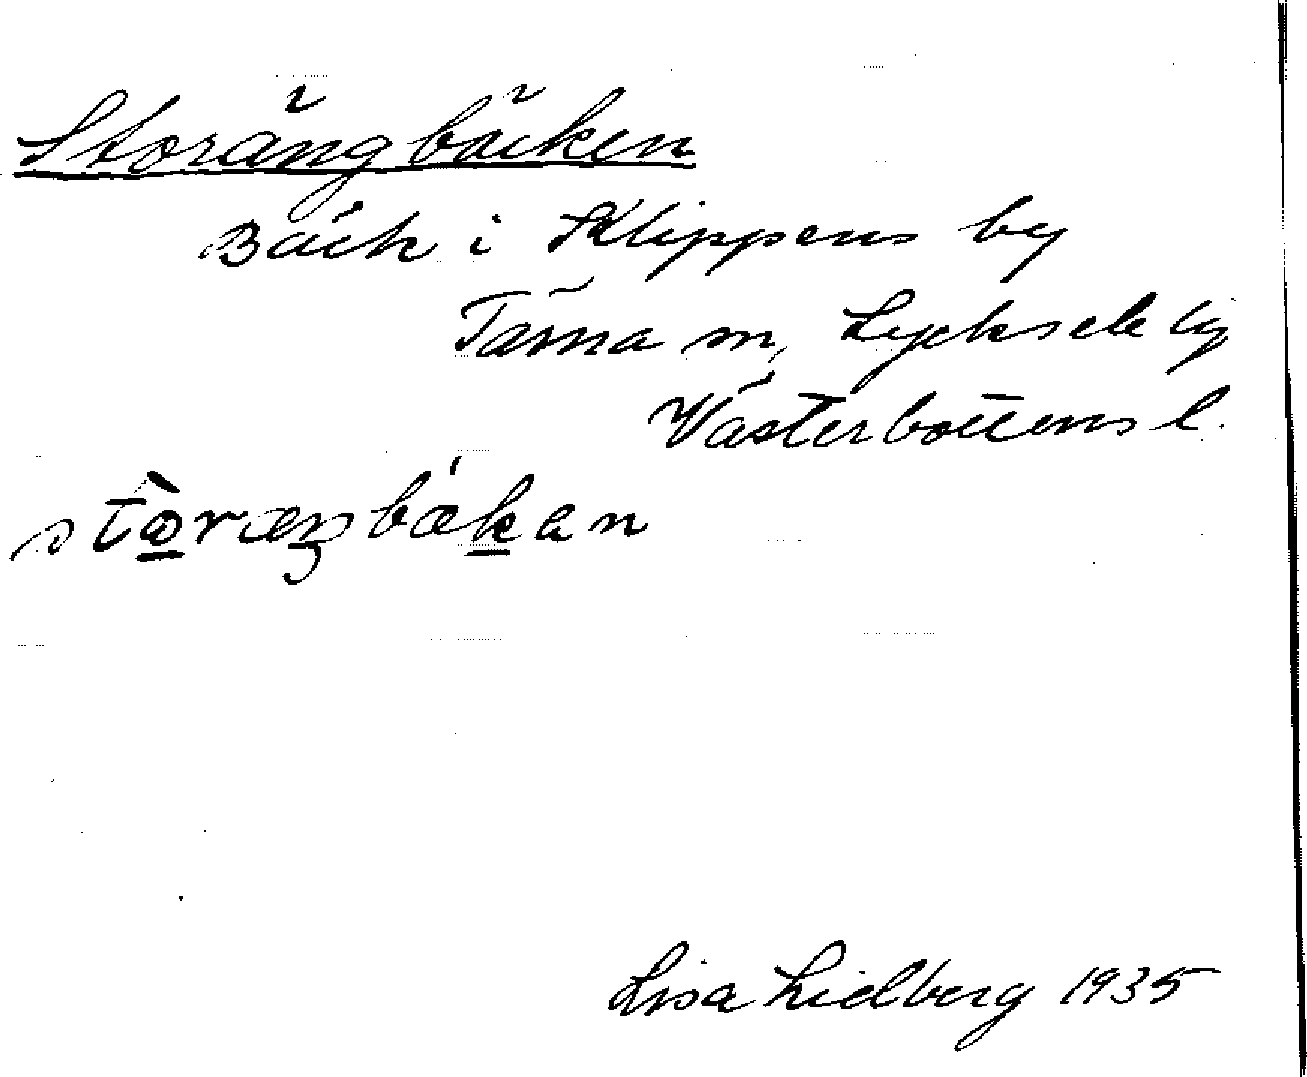 Storängbäcken
Bäck i Klippens by
Tärna sn, Lycksele lg
Västerbottens l.
stòræŋbækan
Lisa Lidberg 1935